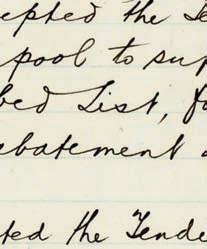 epted the Te
pool to sup
bed List, fo
abatement a
ted the Tende